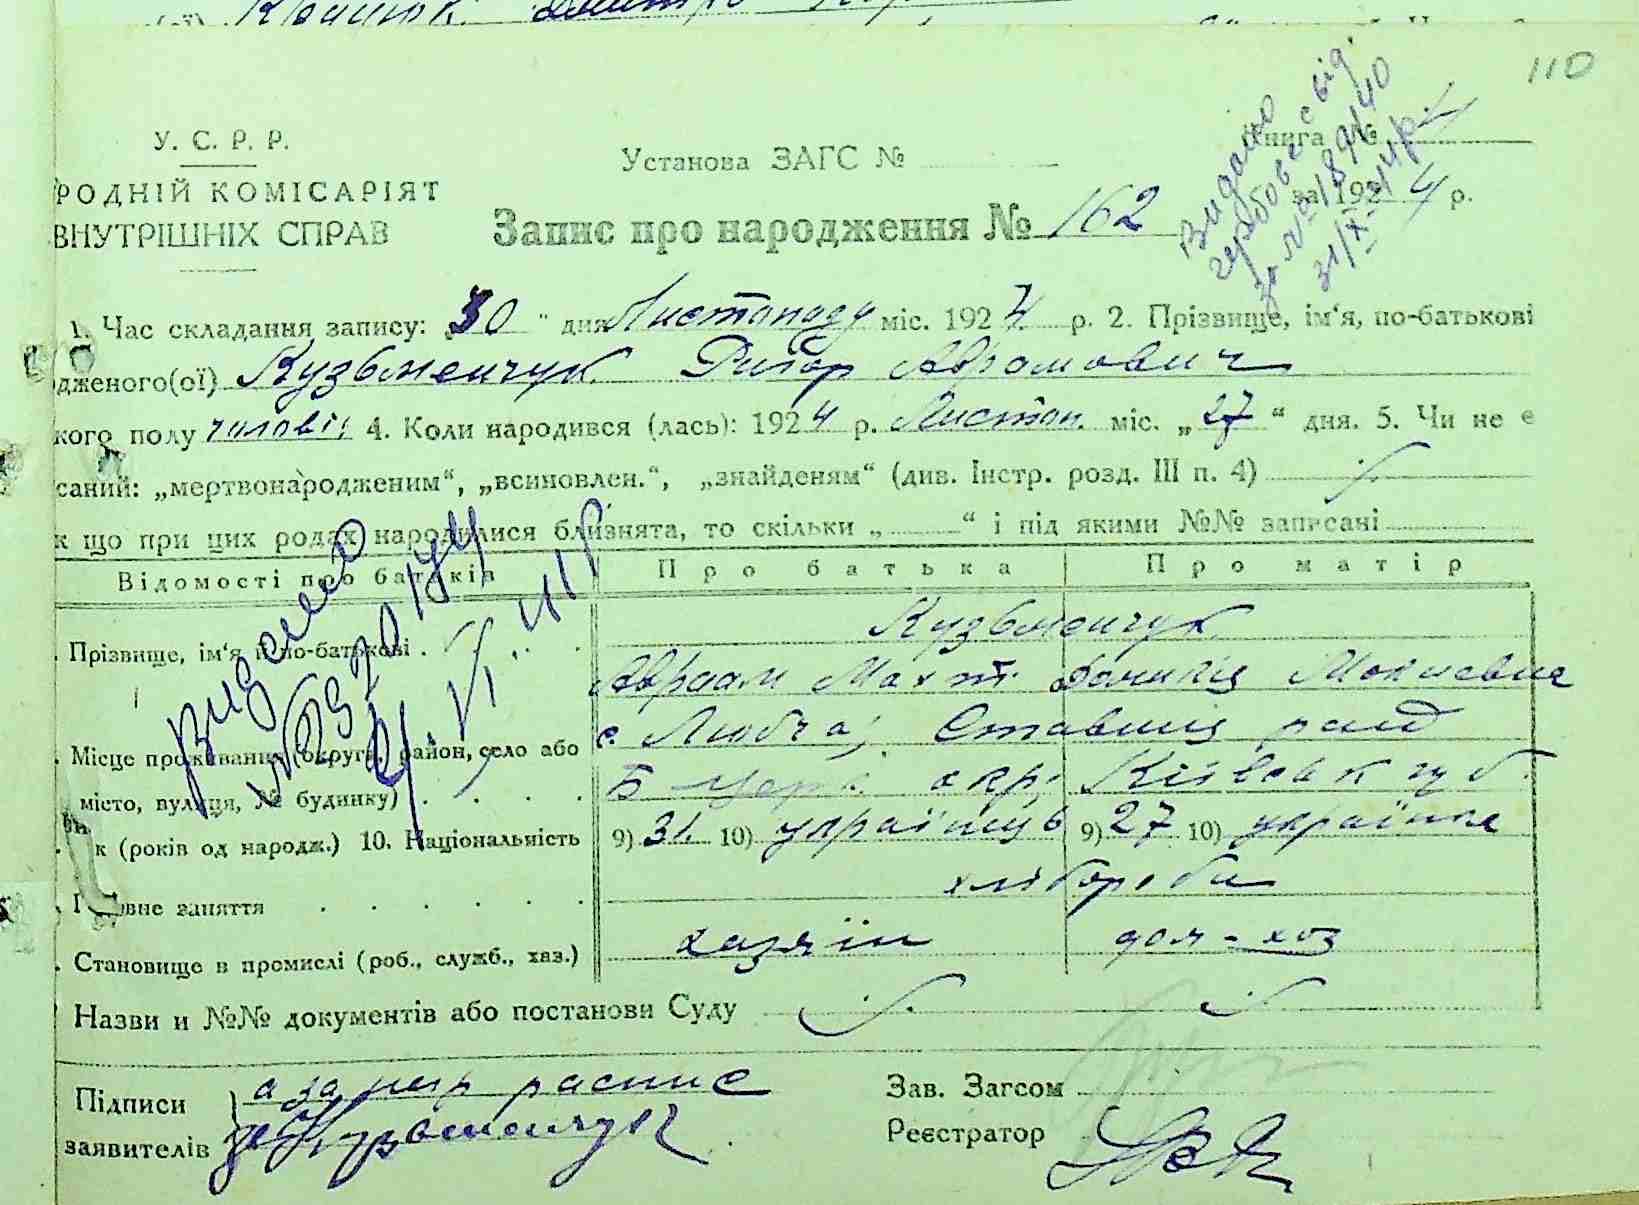 110
У. С. Р. Р.
РОДНІЙ КОМІСАРІЯТ
ВНУТРІШНІХ СПРАВ
Установа ЗАГС №
Книга №
за 1924 р.
Запис про народження № 162
Видано
гербове свід
31/X-44р
1. Час складання запису: „30" дня Листопаду міс. 1924 р. 2. Прізвище, ім'я, по-батькові
дженого(ої) Кузьменчук Григор Аврамович
кого полу чоловіч 4. Коли народився (лась): 1924 р. Листоп. міс. „27" дня. 5. Чи не є
саний: „мертвонародженим", „всиновлен.", „знайденям" (див. Інстр. розд. III п. 4)
к що при цих родах народилися близнята, то скільки „ " і під якими №№ записані
Відомості про батьків Про батька Про матір
Прізвище, ім'я й по-батькові
Кузьменчук
Авраам Докиевна
Місце проживання (округа, район, село або
місто, вулиця, № будинку)
с. Любча, Ставищ раио
Б Церк. окр. Київськ губ.
к (років од народж.) 10. Національність 9) 31 10) українець 9) 27 10) українка
Головне заняття хлібороби
Становище в промислі (роб., служб., хаз.) хазяїн дом-хоз
Видано
Назви и №№ документів або постанови Суду
Підписи
заявителів
Кузьменчук
Зав. Загсом
Реєстратор